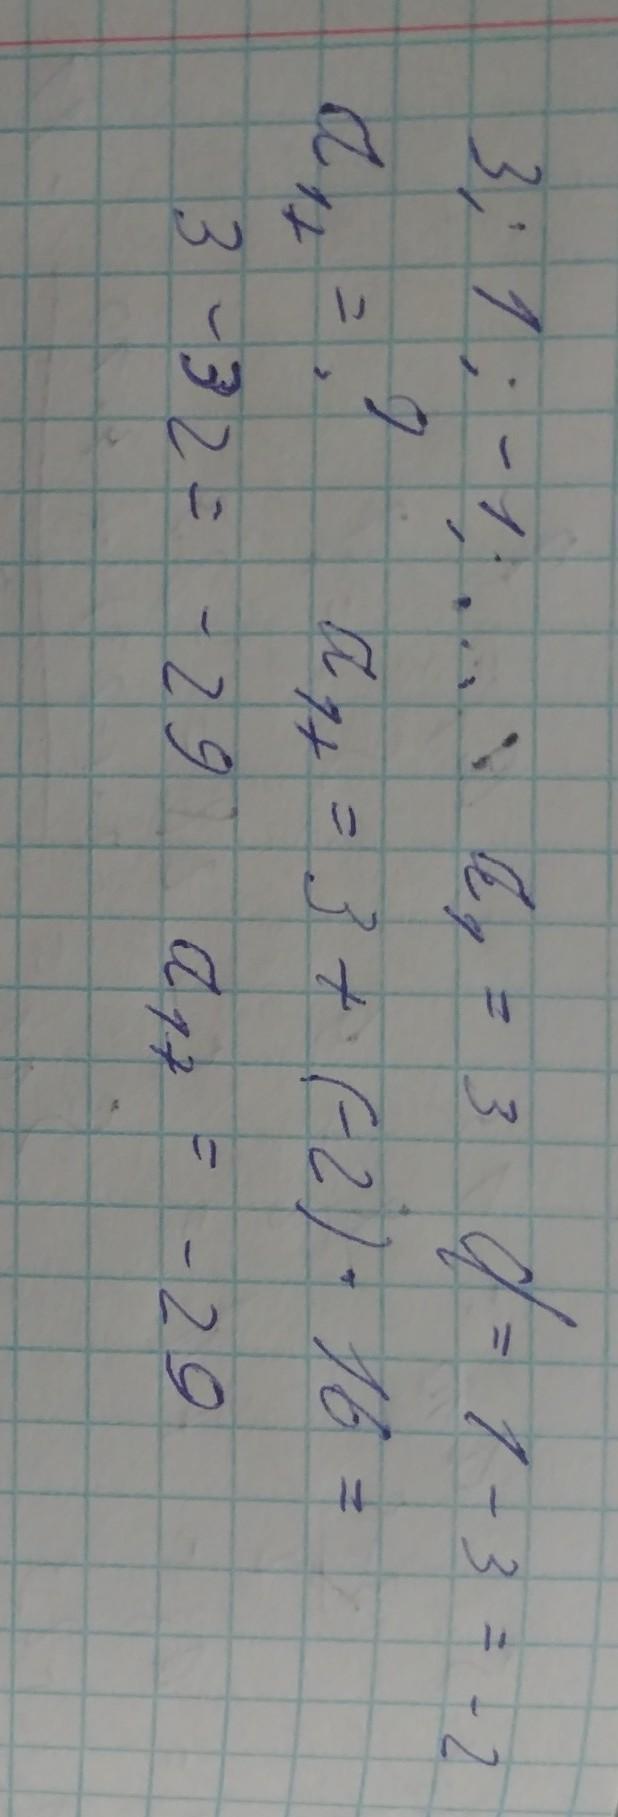 3; 1; -1; ... a₁ = 3 d = 1 - 3 = -2
a₁₇ = ? a₁₇ = 3 + (-2) · 16 =
3 - 32 = -29 a₁₇ = -29